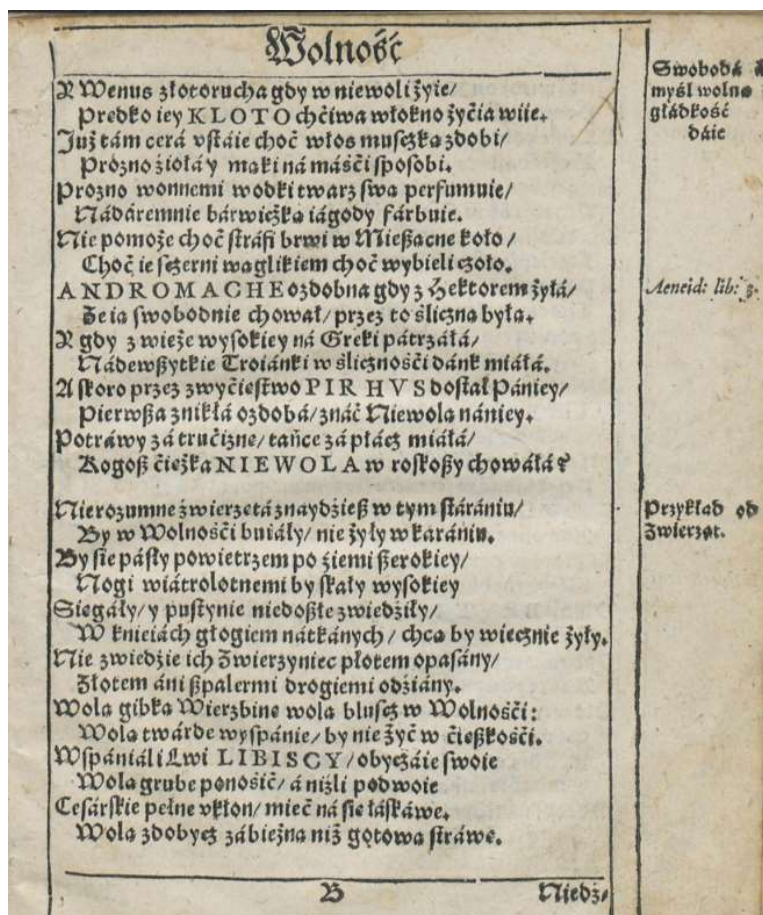 Wolność
A Wenus złotorucha gdy w niewoli żyie/
Prędko iey KLOTO chćiwa włokno żyćia wiie.
Już tám cerá vstáie choć włos muszka zdobi/
Prożno źiołá y maki ná máśći sposobi.
Prozno wonnemi wodki twarz swa perfumuie/
Nádáremnie bárwiczka iágody fárbuie.
Nie pomoże choć stráfi brwi w Mießacne koło/
Choć ie sczerni waglikiem choć wybieli czoło.
ANDROMACHE ozdobna gdy z Hektorem żyłá/
Że ia swobodnie chował/ przez to śliczna była.
A gdy z wieże wysokiey ná Greki pátrzáłá/
Nádewßytkie Troiánki w ślicznośći dánk miáłá.
A skoro przez zwyćiestwo PIRHVS dostał Pániey/
Pierwßa znikłá ozdobá/ znáć Niewola nániey.
Potráwy zá trućizne/ tańce zá płácz miáłá/
Kogoß ćieżka NIEWOLA w roskoßy chowáłá?
Nierozumne źwierzetá znaydźieß w tym stárániu/
By w Wolnośći buiáły/ nie żyły w karániu.
By sie pásły powietrzem po źiemi ßerokiey/
Nogi wiátrolotnemi by skały wysokiey
Siegáły/ y pustynie niedoßłe zwiedźiły/
W knieiách głogiem nátkánych/ chca by wiecznie żyły.
Nie zwiedźie ich Zwierzyniec płotem opasány/
Złotem áni ßpalermi drogiemi odźiány.
Wola gibka Wierzbine wola bluscz w Wolnośći:
Wola twárde wyspánie/ by nie żyć w ćießkośći.
Wspániáli Lwi LIBISCY/ obyczáie swoie
Wola grube ponośić/ á niżli podwoie
Cesárskie pełne vkłon/ mieć ná sie łáskáwe.
Wola zdobycz zábieżna niż gotowa stráwe.
B
Niedź/
Swobodá á
myśl wolna
głádkość
dáie
Aeneid: lib: 3.
Przykład od
Zwierzat.